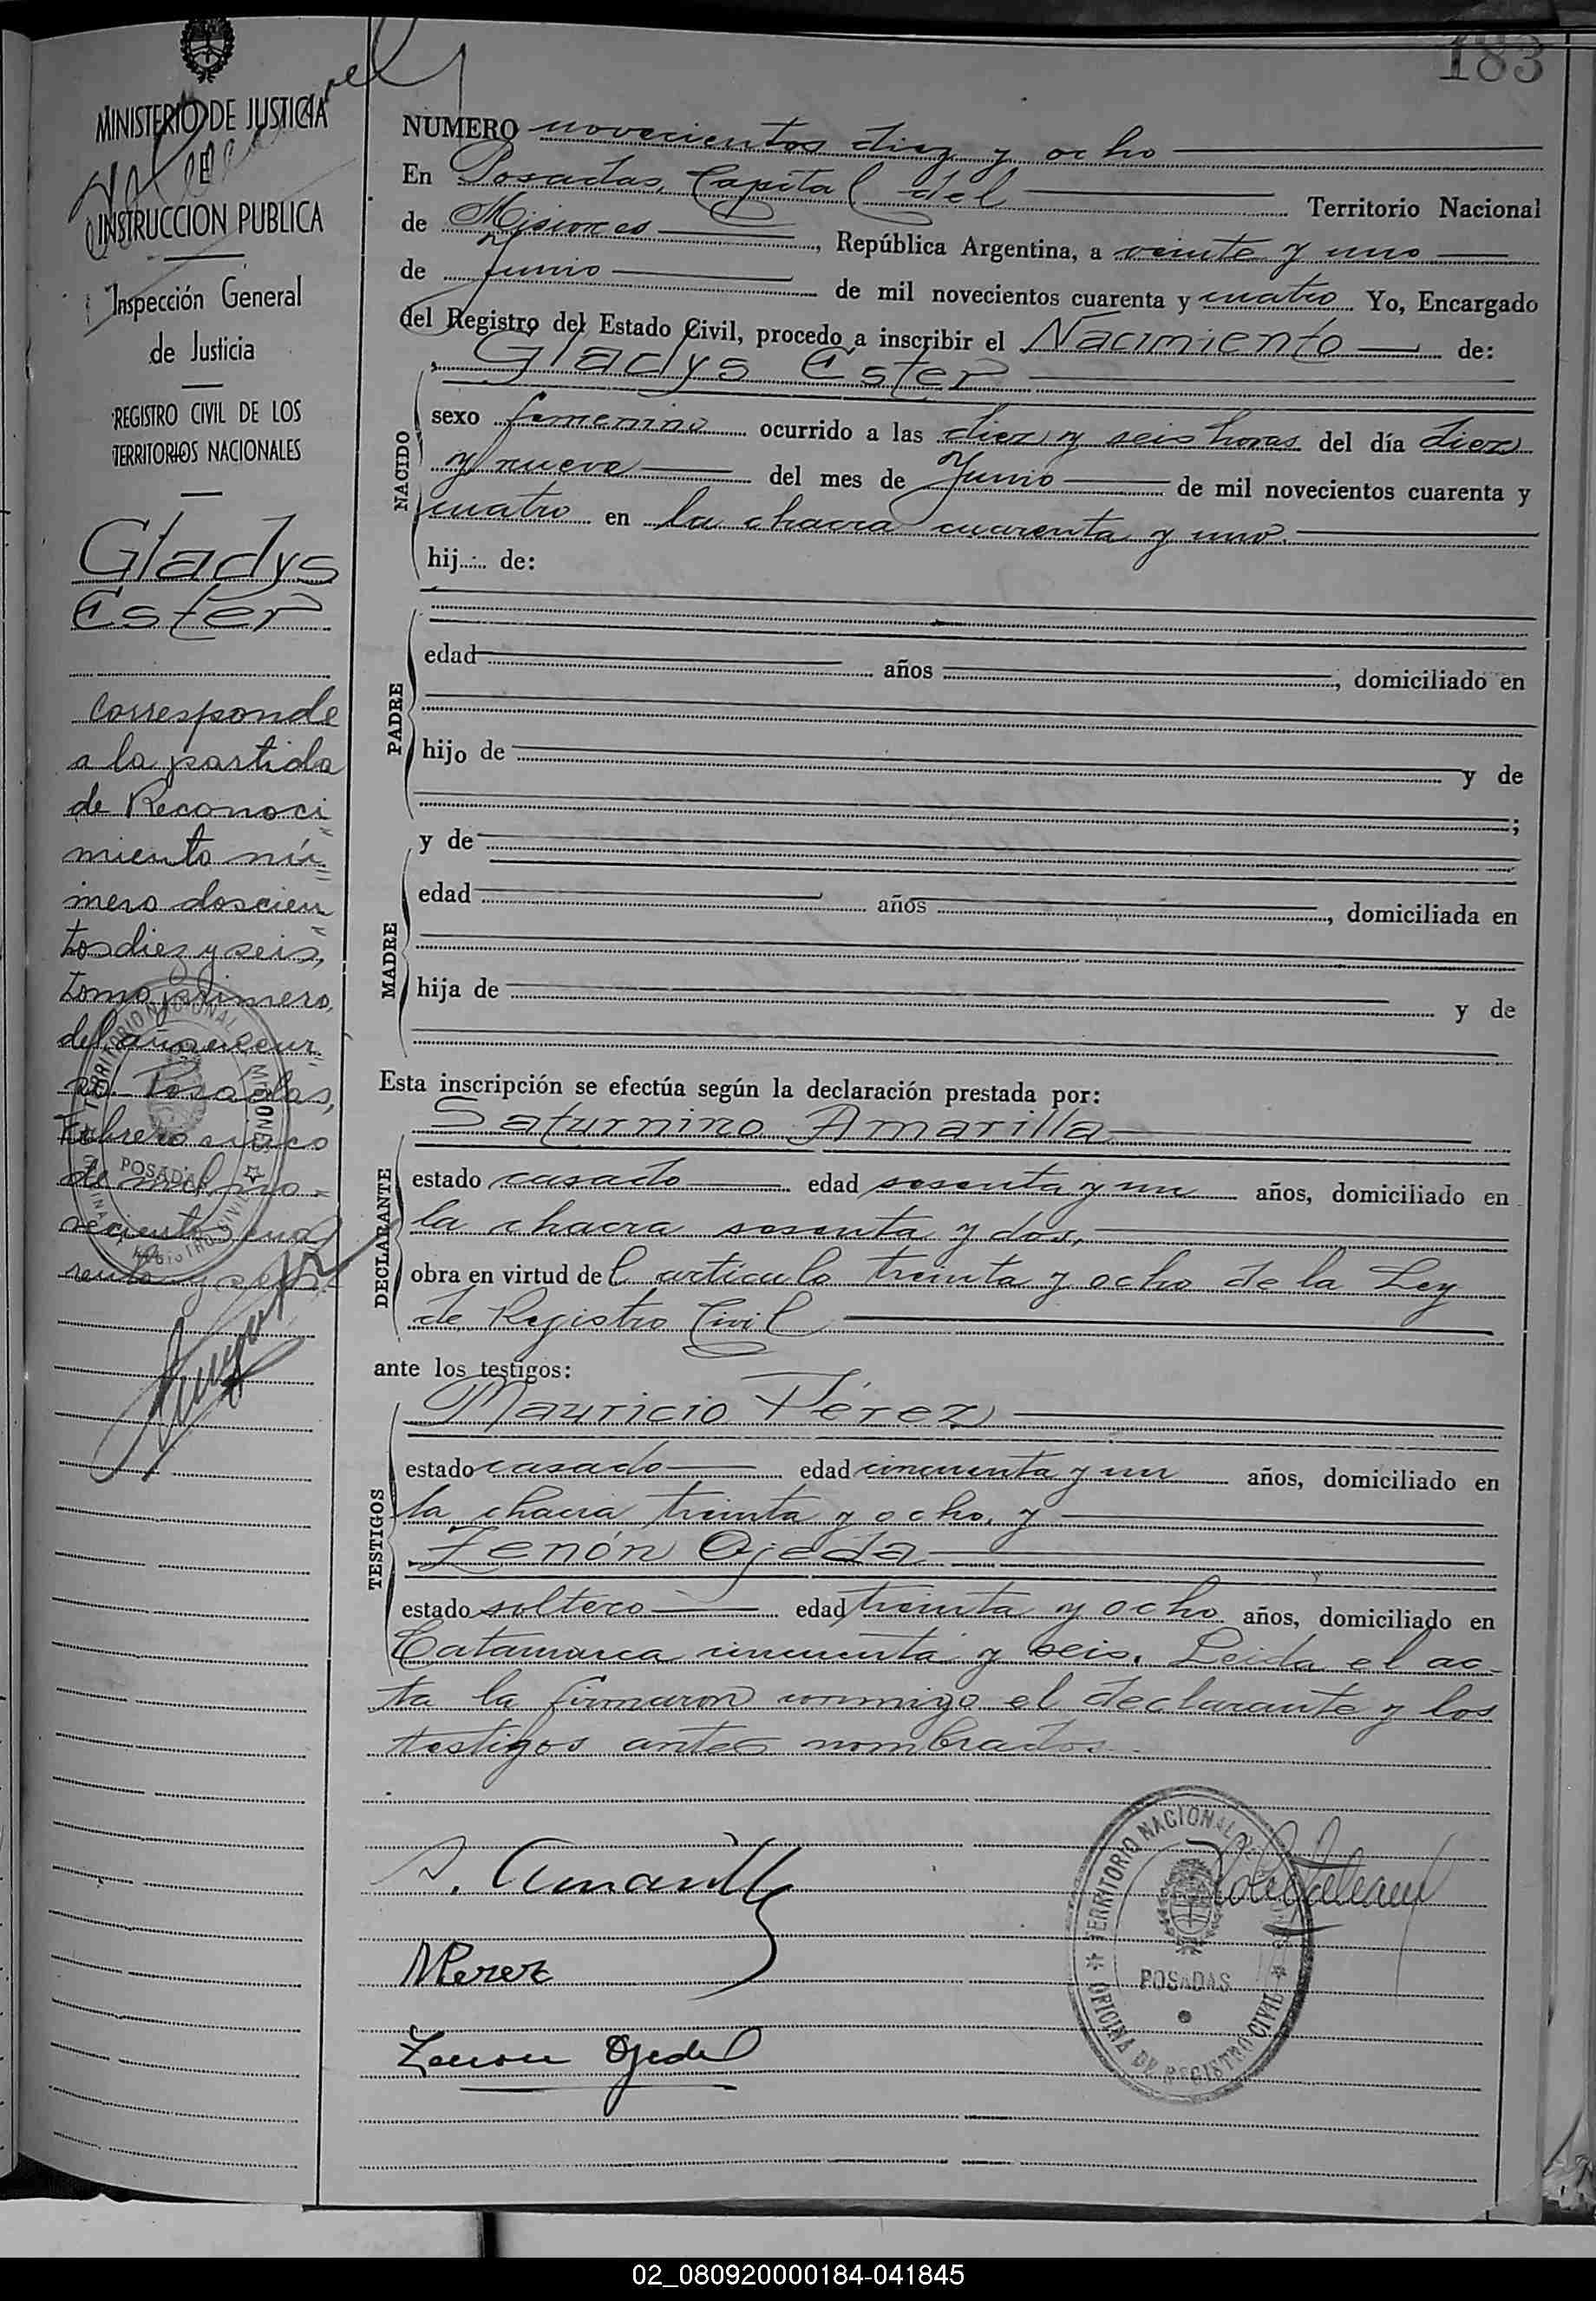 183
MINISTERIO DE JUSTICIA
E
INSTRUCCION PUBLICA
Inspección General
de Justicia
REGISTRO CIVIL DE LOS
TERRITORIOS NACIONALES
Gladys
Ester
Corresponde
a la partida
de Reconoci
miento nú
mero doscien
tos diez y seis,
tomo primero,
del año en cur
so. Posadas,
Febrero cinco
de mil no-
vecientos cua
renta y seis.
NUMERO novecientos diez y ocho
En Posadas, Capital del Territorio Nacional
de Misiones, República Argentina, a veinte y uno
de Junio de mil novecientos cuarenta y cuatro Yo, Encargado
del Registro del Estado Civil, procedo a inscribir el Nacimiento de:
Gladys Ester
NACIDO
sexo femenino ocurrido a las diez y seis horas del día diez
y nueve del mes de Junio de mil novecientos cuarenta y
cuatro en la chacra cuarenta y uno.
hij...... de:
PADRE
edad años, domiciliado en
hijo de y de
;
y de
MADRE
edad años, domiciliada en
hija de y de
Esta inscripción se efectúa según la declaración prestada por:
Saturnino Amarilla
DECLARANTE
estado casado edad sesenta y un años, domiciliado en
la chacra sesenta y dos,
obra en virtud del artículo treinta y ocho de la Ley
de Registro Civil
ante los testigos:
Mauricio Pérez
TESTIGOS
estado casado edad cincuenta y un años, domiciliado en
la chacra treinta y ocho, y
Zenón Ojeda
estado soltero edad treinta y ocho años, domiciliado en
Catamarca cincuenta y seis. Leida el ac-
ta la firmaron conmigo el declarante y los
testigos antes nombrados.
S. Amarilla
MPerez
Zenon Ojeda
TERRITORIO NACIONAL DE MISIONES
POSADAS
OFICINA DE REGISTRO CIVIL
02_080920000184-041845